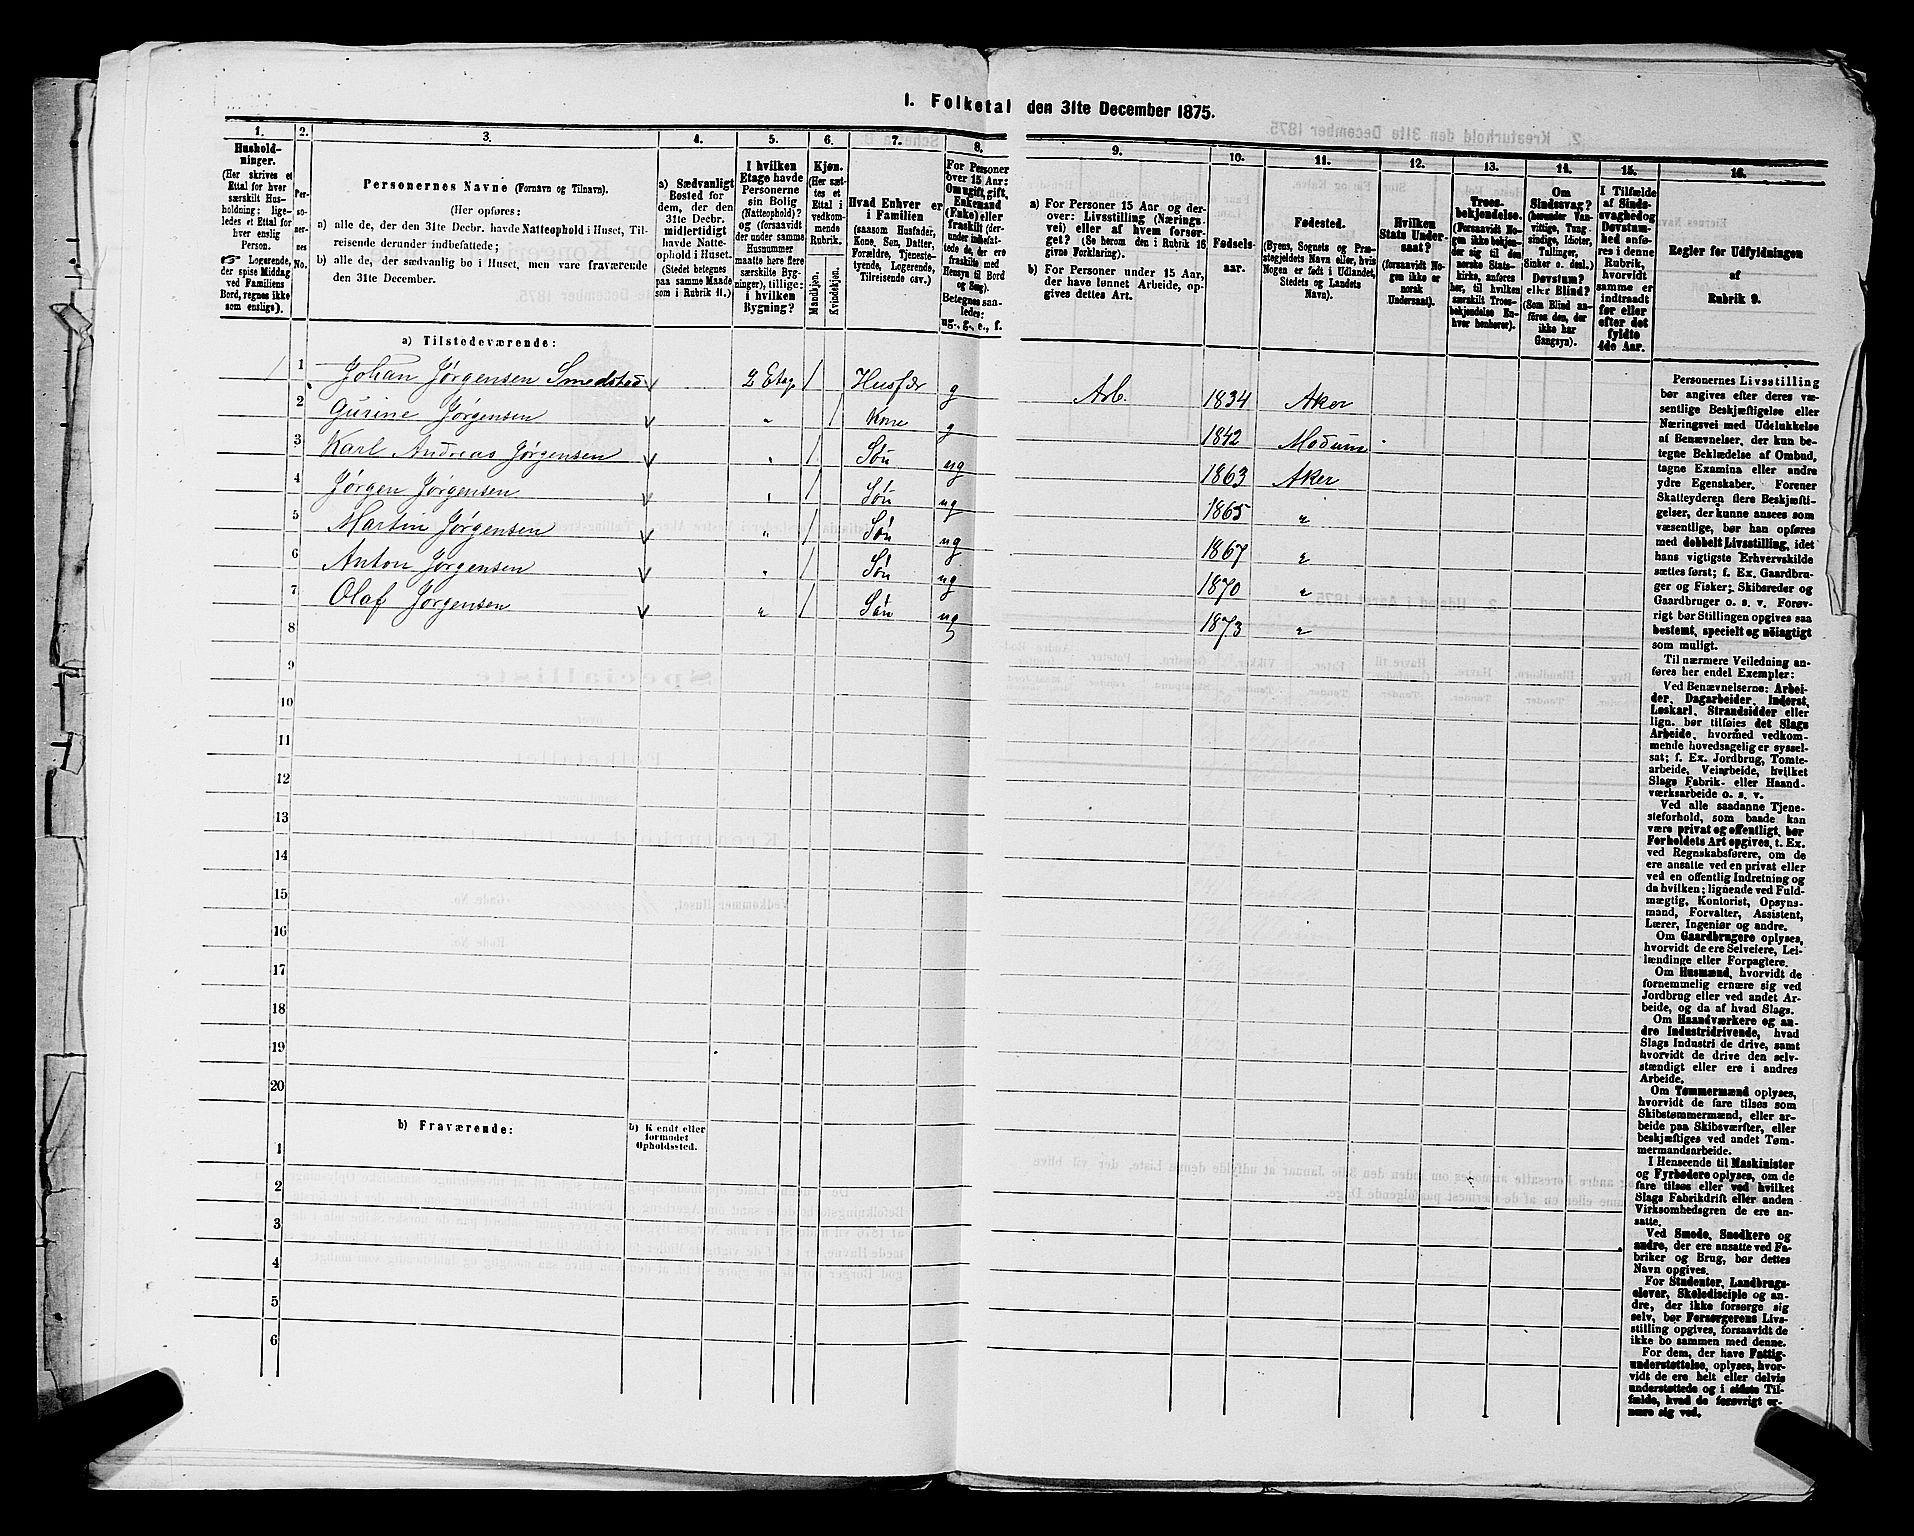 1. Folketal den 31te December 1875.
1. 2. 3. 4. 5. 6. 7. 8. 9. 10. 11. 12. 13. 14. 15. 16.
Hushold-
ninger.
(Her skrives et
Ettal for hver
særskilt Hus-
holdning; lige-
ledes et Ettal for
hver enslig
Person.
Logerende,
der spise Middag
ved Familiens
Bord, regnes ikke
som enslige).
Per-
so-
ner-
nes
No.
Personernes Navne (Fornavn og Tilnavn).
(Her opføres:
a) alle de, der den 31te Decbr. havde Natteophold i Huset, Til-
reisende derunder indbefattede;
b) alle de, der sædvanlig bo i Huset, men vare fraværende
den 31te December.
a) Sædvanligt
Bosted for
dem, der den
31te Decbr.
midlertidigt
havde Natte-
ophold i Huset.
(Stedet betegnes
paa samme Maade
som i Rubrik 11.)
I hvilken
Etage havde
Personerne
sin Bolig
(Natteophold)?
og (forsaavidt
der under samme
Husnummer
maatte høre flere
særskilte Byg-
ninger), tillige:
i hvilken
Bygning?
Kjøn.
(Her sæt-
tes et
Ettal i
vedkom-
mende
Rubrik.
Mandkjøn.
Kvindekjøn.
Hvad Enhver er
i Familien
(saasom Husfader,
Kone, Søn, Datter,
Forældre, Tjeneste-
tyende, Logerende,
Tilreisende osv.)
For Personer
over 15 Aar:
Om ugift, gift,
Enkemand
(Enke) eller
fraskilt (der-
under indbefat-
tede de, der ere
fraskilte med
Hensyn til Bord
og Seng).
Betegnes saa-
ledes:
ug., g., e., f.
a) For Personer 15 Aar og der-
over: Livsstilling (Nærings-
vei) eller af hvem forsør-
get? (Se herom den i Rubrik 16
givne Forklaring).
b) For Personer under 15 Aar,
der have lønnet Arbeide, op-
gives dettes Art.
Fødsels-
aar.
Fødested.
(Byens, Sognets og Præ-
stegjeldets Navn eller, hvis
Nogen er født i Udlandet,
Stedets og Landets
Navn).
Hvilken
Stats Under-
saat?
(forsaavidt No-
gen ikke er
norsk
Undersaat).
Troes-
bekjendelse.
(Forsaavidt No-
gen ikke bekjen-
der sig til den
norske Stats-
kirke, anføres
her, til hvilken
særskilt Troes-
bekjendelse En-
hver henhører).
Om
Sindssvag?
(herunder Van-
vittige, Tung-
sindige, Idioter,
Tullinger,
Sinker o. desl.)
Døvstum?
eller Blind?
(Som Blind an-
føres den, der
ikke har
Gangsyn).
I Tilfælde
af Sinds-
svaghed og
Døvstum-
hed anfø-
res i denne
Rubrik,
hvorvidt
samme er
indtraadt
før eller
efter det
fyldte
4de Aar.
Regler for Udfyldningen
af
Rubrik 9.
a) Tilstedeværende:
1 Johan Jørgensen Smedstad 2 Etag / Husfar g Arb. 1834 Aker
2 Gurine Jørgensen " / Kone g 1842 Modum
3 Karl Andreas Jørgensen " / Søn ug 1863 Aker
4 Jørgen Jørgensen " / Søn ug 1865 "
5 Martin Jørgensen " / Søn ug 1867 "
6 Anton Jørgensen " / Søn ug 1870 "
7 Olaf Jørgensen " / Søn ug 1873 "
8
9
10
11
12
13
14
15
16
17
18
19
20
b) Fraværende:
b) Kendt eller
formodet
Opholdssted.
1
2
3
4
5
6
Personernes Livsstilling
bør angives efter deres væ-
sentlige Beskjæftigelse eller
Næringsvei med Udelukkelse
af Benævnelser, der kun be-
tegne Beklædelse af Ombud,
tagne Examina eller andre
ydre Egenskaber. Forener
Skatteyderen flere Beskjæfti-
gelser, der kunne ansees som
væsentlige, bør han opføres
med dobbelt Livsstilling, idet
hans vigtigste Erhvervskilde
sættes først; f. Ex. Gaardbru-
ger og Fisker; Skibsreder og
Gaardbruger o. s. v. Forøv-
rigt bør Stillingen opgives saa
bestemt, specielt og nøiagtigt
som muligt.
Til nærmere Veiledning an-
føres her endel Exempler:
Ved Benævnelserne: Arbei-
der, Dagarbeider, Inderst,
Løskarl, Strandsidder eller
lign. bør tilføies det Slags
Arbeide, hvormed vedkom-
mende hovedsagelig er syssel-
sat; f. Ex. Jordbrug, Tomte-
arbeide, Veiarbeide, hvilket
Slags Fabrik- eller Haand-
værksarbeide o. s. v.
Ved alle saadanne Tjene-
steforhold, som baade kan
være privat og offentligt, bør
Forholdets Art opgives, t. Ex.
ved Regnskabsførere, om de
ere ansatte ved en privat eller
ved en offentlig Indretning og
da hvilken; lignende ved Fuld-
mægtig, Kontorist, Opsyns-
mand, Forvalter, Assistent,
Lærer, Ingeniør og andre.
Om Gaardbrugere oplyses,
hvorvidt de ere Selveiere, Lei-
lændinge eller Forpagtere.
Om Husmænd, hvorvidt de
fornemmelig ernære sig ved
Jordbrug eller ved andet Ar-
beide, og da af hvad Slags.
Om Haandværkere og an-
dre Industridrivende, hvad
Slags Industri de drive, samt
hvorvidt de drive den selv-
stændigt eller ere i andres
Arbeide.
Om Tømmermænd oplyses,
hvorvidt de fare tilsøs som
Skibstømmermænd, eller ar-
beide paa Skibsværfter, eller
beskjæftiges ved andet Tøm-
mermandsarbeide.
I Henseende til Maskinister
og Fyrbødere oplyses, om de
fare tilsøs eller ved hvilket
Slags Fabrikdrift eller anden
Virksomhedsgren de ere an-
satte.
Ved Smede, Snedkere og
andre, der ere ansatte ved Fa-
briker og Brug, bør dettes
Navn opgives.
For Studenter, Landbrugs-
elever, Skoledisciple og an-
dre, der ikke forsørge sig
selv, bør Forsørgerens Livs-
stilling opgives, forsaavidt de
ikke bo sammen med denne.
For dem, der have Fattig-
understøttelse, oplyses, hvor-
vidt de ere helt eller delvis
understøttede og i sidste Til-
fælde, hvad de forøvrigt er-
nære sig ved.